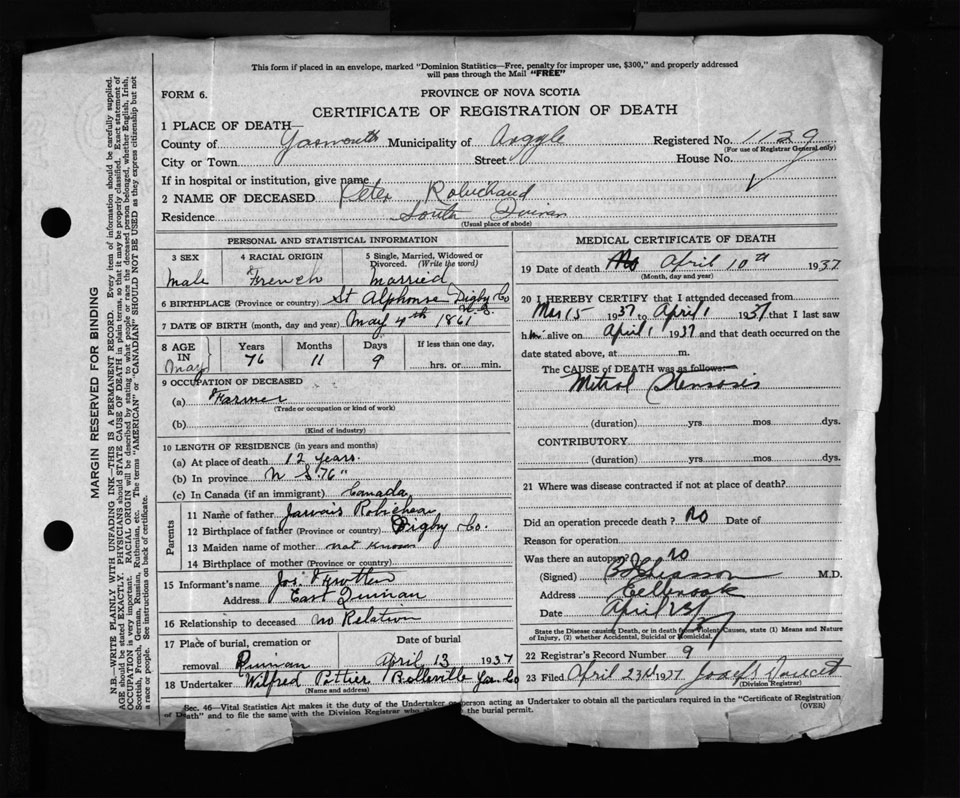 This form if placed in an envelope, marked "Dominion Statistics—Free, penalty for improper use, $300," and properly addressed
will pass through the Mail "FREE"
FORM 6.
PROVINCE OF NOVA SCOTIA
CERTIFICATE OF REGISTRATION OF DEATH
1 PLACE OF DEATH—
County of Yarmouth Municipality of Argyle Registered No. 1129
(For use of Registrar General only)
City or Town Street House No.
If in hospital or institution, give name
2 NAME OF DECEASED Peter Robichaud
Residence South Quinan
(Usual place of abode)
PERSONAL AND STATISTICAL INFORMATION
3 SEX 4 RACIAL ORIGIN 5 Single, Married, Widowed or Divorced. (Write the word)
Male French Married
6 BIRTHPLACE (Province or country) St Alphonse Digby Co N.S.
7 DATE OF BIRTH (month, day and year) May 4th 1861
8 AGE IN Years Months Days If less than one day,
May 76 11 9 hrs. or min.
9 OCCUPATION OF DECEASED
(a) Farmer
(Trade or occupation or kind of work)
(b)
(Kind of industry)
10 LENGTH OF RESIDENCE (in years and months)
(a) At place of death 12 years.
(b) In province N S. 76 "
(c) In Canada (if an immigrant) Canada
Parents
11 Name of father
12 Birthplace of father (Province or country) Digby Co.
13 Maiden name of mother not known
14 Birthplace of mother (Province or country)
15 Informant's name Jos.
Address East Quinan
16 Relationship to deceased no Relation
17 Place of burial, cremation or removal Date of burial
Quinan April 13 1937
18 Undertaker Wilfred Pottier Belleville Yar. Co
(Name and address)
MEDICAL CERTIFICATE OF DEATH
19 Date of death April 10th 1937
(Month, day and year)
20 I HEREBY CERTIFY that I attended deceased from
Mar 15 1937 to April 1 1937 that I last saw
him alive on April 1 1937 and that death occurred on the
date stated above, at m.
The CAUSE of DEATH was as follows:
Mitral Stenosis
(duration) yrs. mos. dys.
CONTRIBUTORY
(duration) yrs. mos. dys.
21 Where was disease contracted if not at place of death?
Did an operation precede death? no Date of
Reason for operation
Was there an autopsy? no
(Signed) M.D.
Address Eelbrook
Date April 13/37
State the Disease causing Death, or in death from Violent Causes, state (1) Means and Nature
of Injury, (2) whether Accidental, Suicidal or Homicidal.
22 Registrar's Record Number 9
23 Filed April 23d 1937 Doucet
(Division Registrar)
Sec. 46—Vital Statistics Act makes it the duty of the Undertaker or person acting as Undertaker to obtain all the particulars required in the "Certificate of Registration
of Death" and to file the same with the Division Registrar who the burial permit.
(OVER)
MARGIN RESERVED FOR BINDING
N.B.—WRITE PLAINLY WITH UNFADING INK—THIS IS A PERMANENT RECORD. Every item of information should be carefully supplied.
AGE should be stated EXACTLY. PHYSICIANS should STATE CAUSE OF DEATH in plain terms, so that it may be properly classified. Exact statement of
OCCUPATION is very important. RACIAL ORIGIN will be described by stating to what people or race the deceased person belonged, whether English, Irish,
Scottish, French, German, Russian, Ruthenian, etc. The terms "AMERICAN" or "CANADIAN" SHOULD NOT BE USED as they express citizenship but not
a race or people. See instructions on back of certificate.